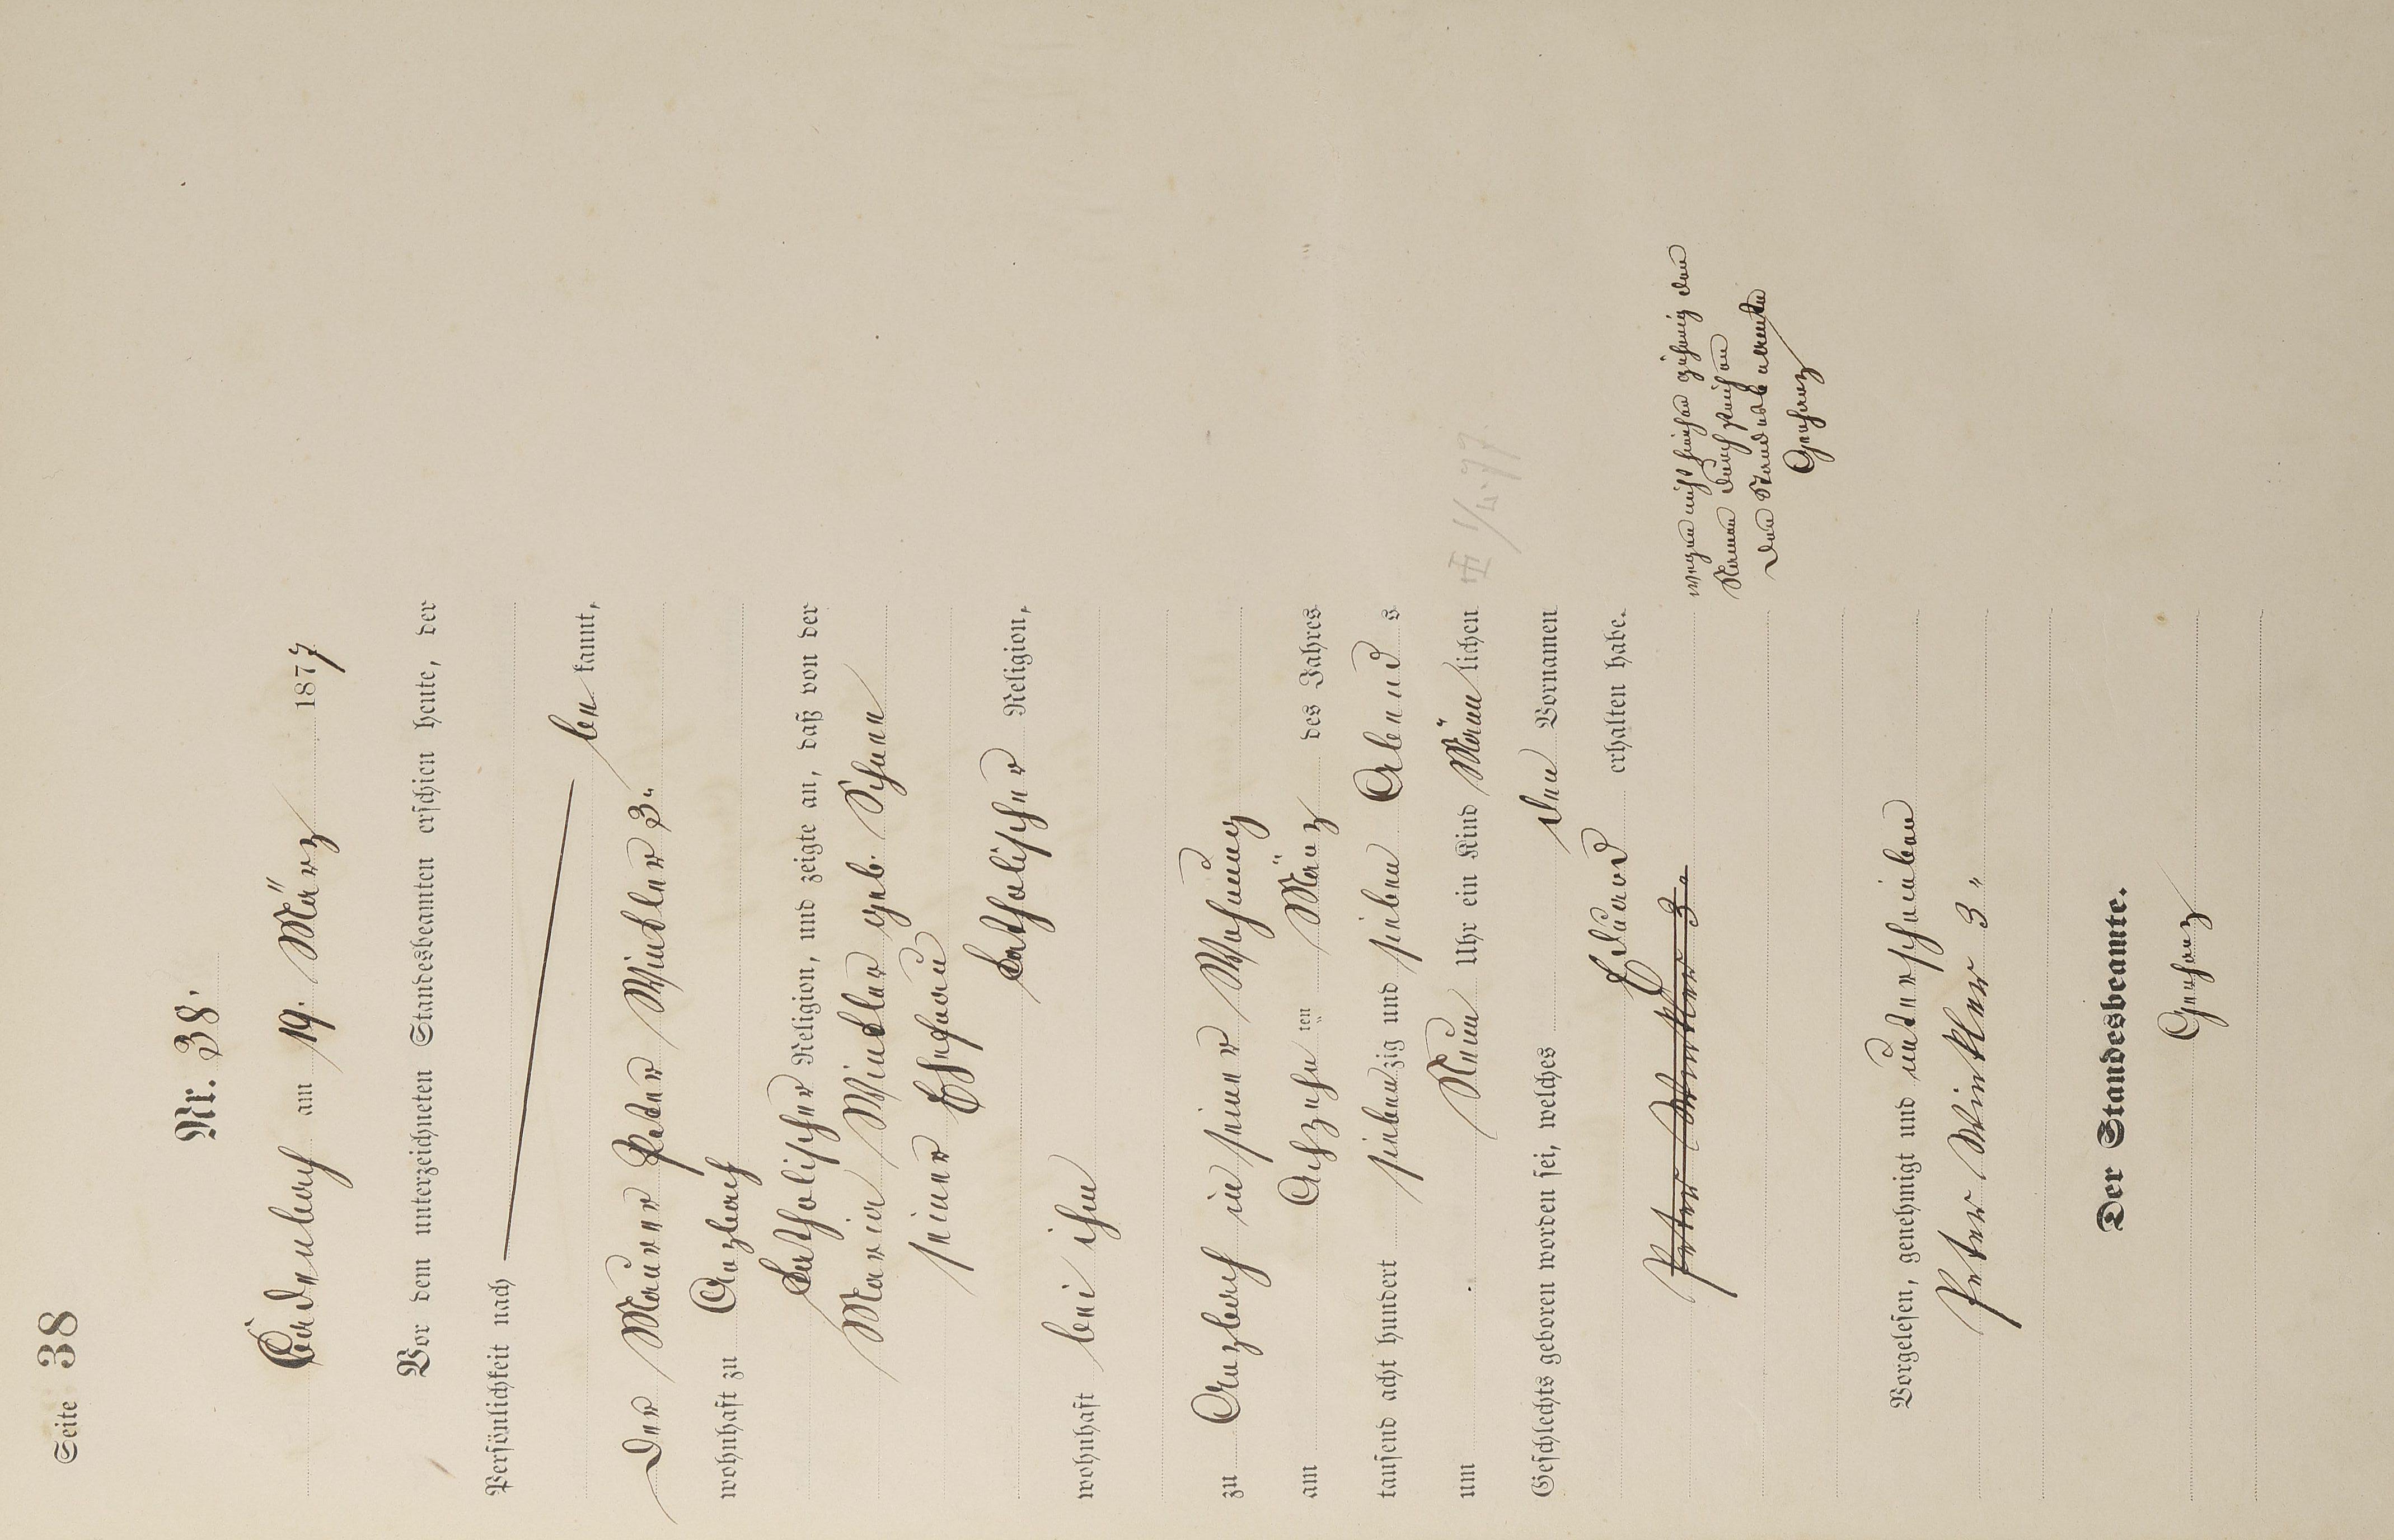 Seite 38
Nr. 38.
Cadenbach am 19. März 1877
Vor dem unterzeichneten Standesbeamten erschien heute, der
Persönlichkeit nach
be kannt,
der Maurer Peter Winkler 3.
wohnhaft zu Arzbach
katholischer Religion, und zeigte an, daß von der
Maria Winkler geb. Schenn
seiner Ehefrau
katholischer Religion,
wohnhaft bei ihm
zu Arzbach in seiner Wohnung
am Achzehn ten März des Jahres
tausend acht hundert siebenzig und sieben Abend s
um Neun Uhr ein Kind Männlichen
Geschlechts geboren worden sei, welches den Vornamen
Eduard erhalten habe.
Peter Winkler 3.
wegen nicht hierher gehörig den
Namen durchstrichen
Der Standesbeamte
Vorgelesen, genehmigt und unterschrieben
Peter Winkler 3"
Der Standesbeamte.